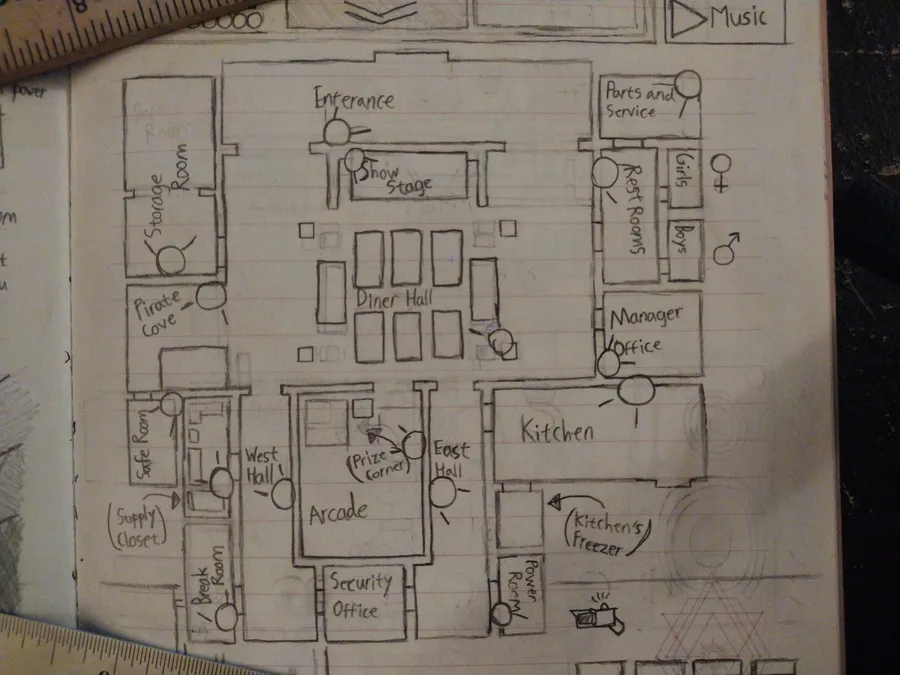 Music
power
Enterance
Parts and
Service
Show
Stage
Storage
Room
Rest Rooms
Girls
Boys
Pirate
Cove
Diner Hall
Manager
Office
Safe Room
West
Hall
(Prize
Corner)
East
Hall
Kitchen
Arcade
(Supply
Closet)
(Kitchen's
Freezer)
Break
Room
Security
Office
Power
Room